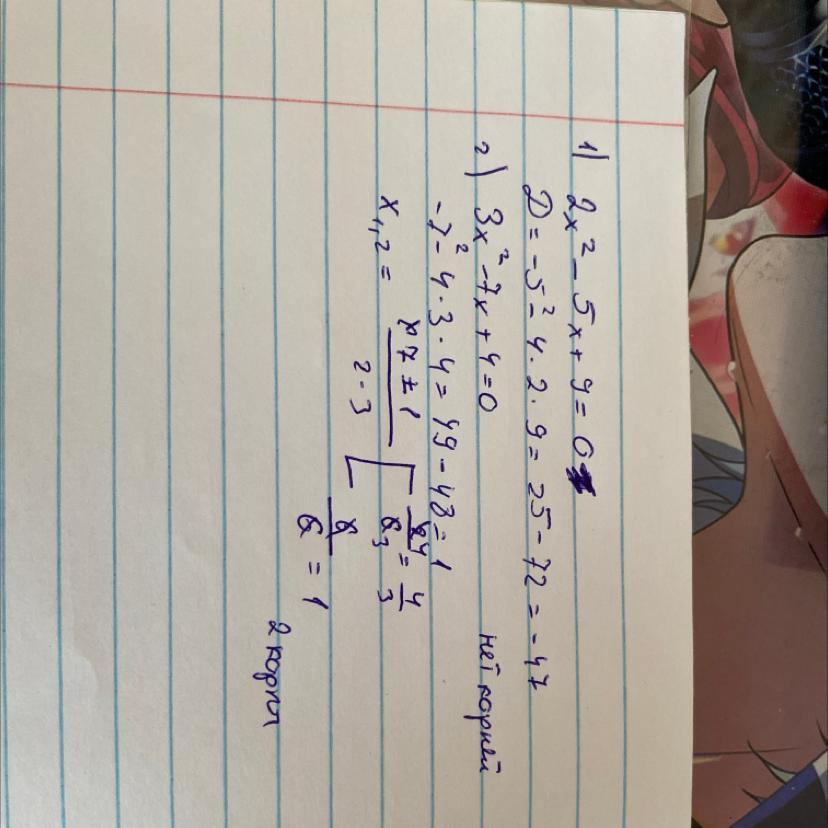 1) 2x² - 5x + 9 = 0
D = -5² - 4·2·9 = 25 - 72 = -47
нет корней
2) 3x² - 7x + 4 = 0
-7² - 4·3·4 = 49 - 48 = 1
x₁,₂ = 7 ± 1 / 2·3 [ 8 4 / 6 3 = 4/3
6/6 = 1
2 корня